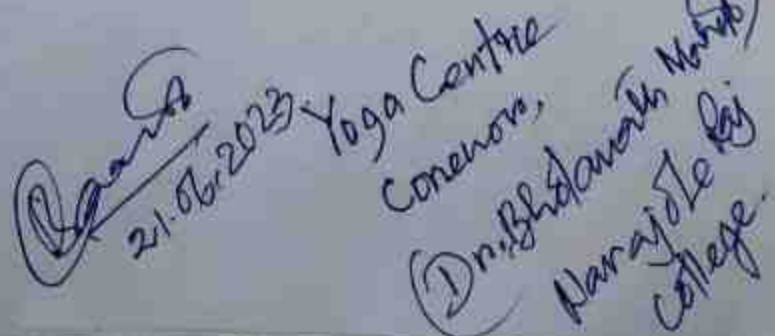 21.06.2023
Yoga Centre
Conenor,
(Dr. Bholanath
Narajole Raj
College.